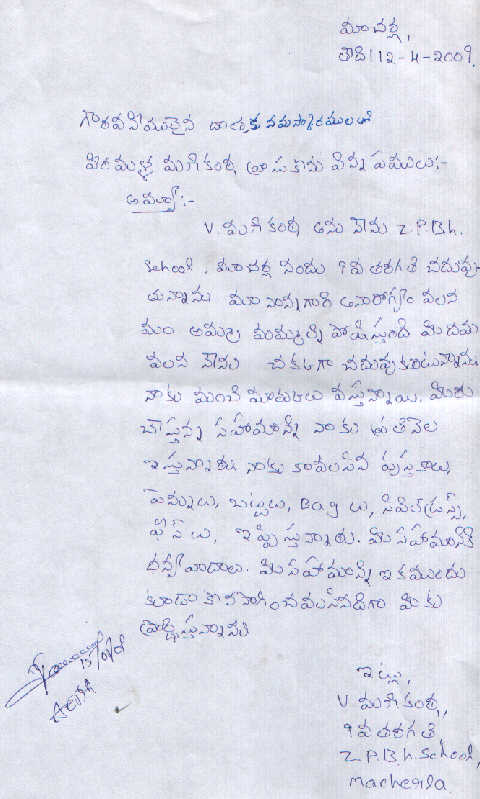 మాచర్ల,
తేది 12-4-2009.
గౌరవనీయులైన దాతకు నమస్కారములతో
పిడముళ్ల మణికంఠ వ్రాసుకొను విన్నపములు:-
అమ్మా :-
V. మణికంఠ అను నేను Z.P.B.h.
School. మాచర్ల నందు 9వ తరగతి చదువు-
తున్నాను మా నాన్నగారి అనారోగ్యం వలన
మా అమ్మ మమ్మల్ని పోషిస్తుంది మీ దయ
వలన నేను చక్కగా చదువుకుంటున్నాను
నాకు మంచి మార్కులు వస్తున్నాయి. మీరు
చేస్తున్న సహాయాన్ని నాకు ప్రతినెల
ఇస్తున్నారు నాకు కావలసిన పుస్తకాలు,
పెన్నులు, బట్టలు, Bag లు, సివిల్ డ్రస్స్,
ఫీజ్ లు, ఇప్పిస్తున్నారు. మీ సహాయానికి
ధన్యవాదాలు. మీ సహాయాన్ని ఇక ముందు
కూడా కొనసాగించవలసినదిగా మీకు
ప్రార్థిస్తున్నాను
ఇట్లు,
V మణికంఠ,
9వ తరగతి
Z.P.B.h School,
Macherla.